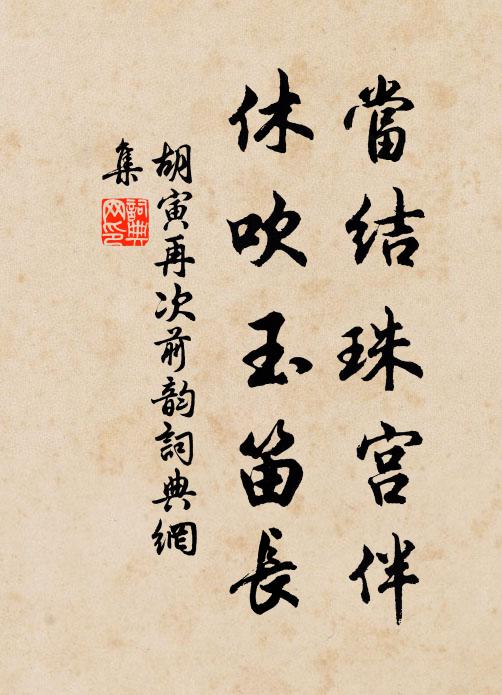 當結珠宮伴
休吹玉笛長
胡寅再次前韵詞典網
集
詞典
网印